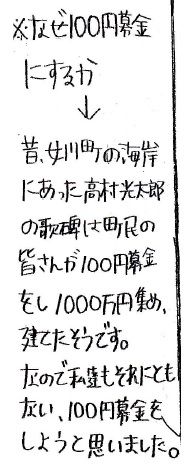 ※なぜ100円募金
にするか
↓
昔、女川町の、海岸
にあった高村光太郎
の歌碑は町民の
皆さんが100円募金
をし1000万円集め、
建てたそうです。
なので私達もそれにとも
ない、100円募金を
しようと思いました。